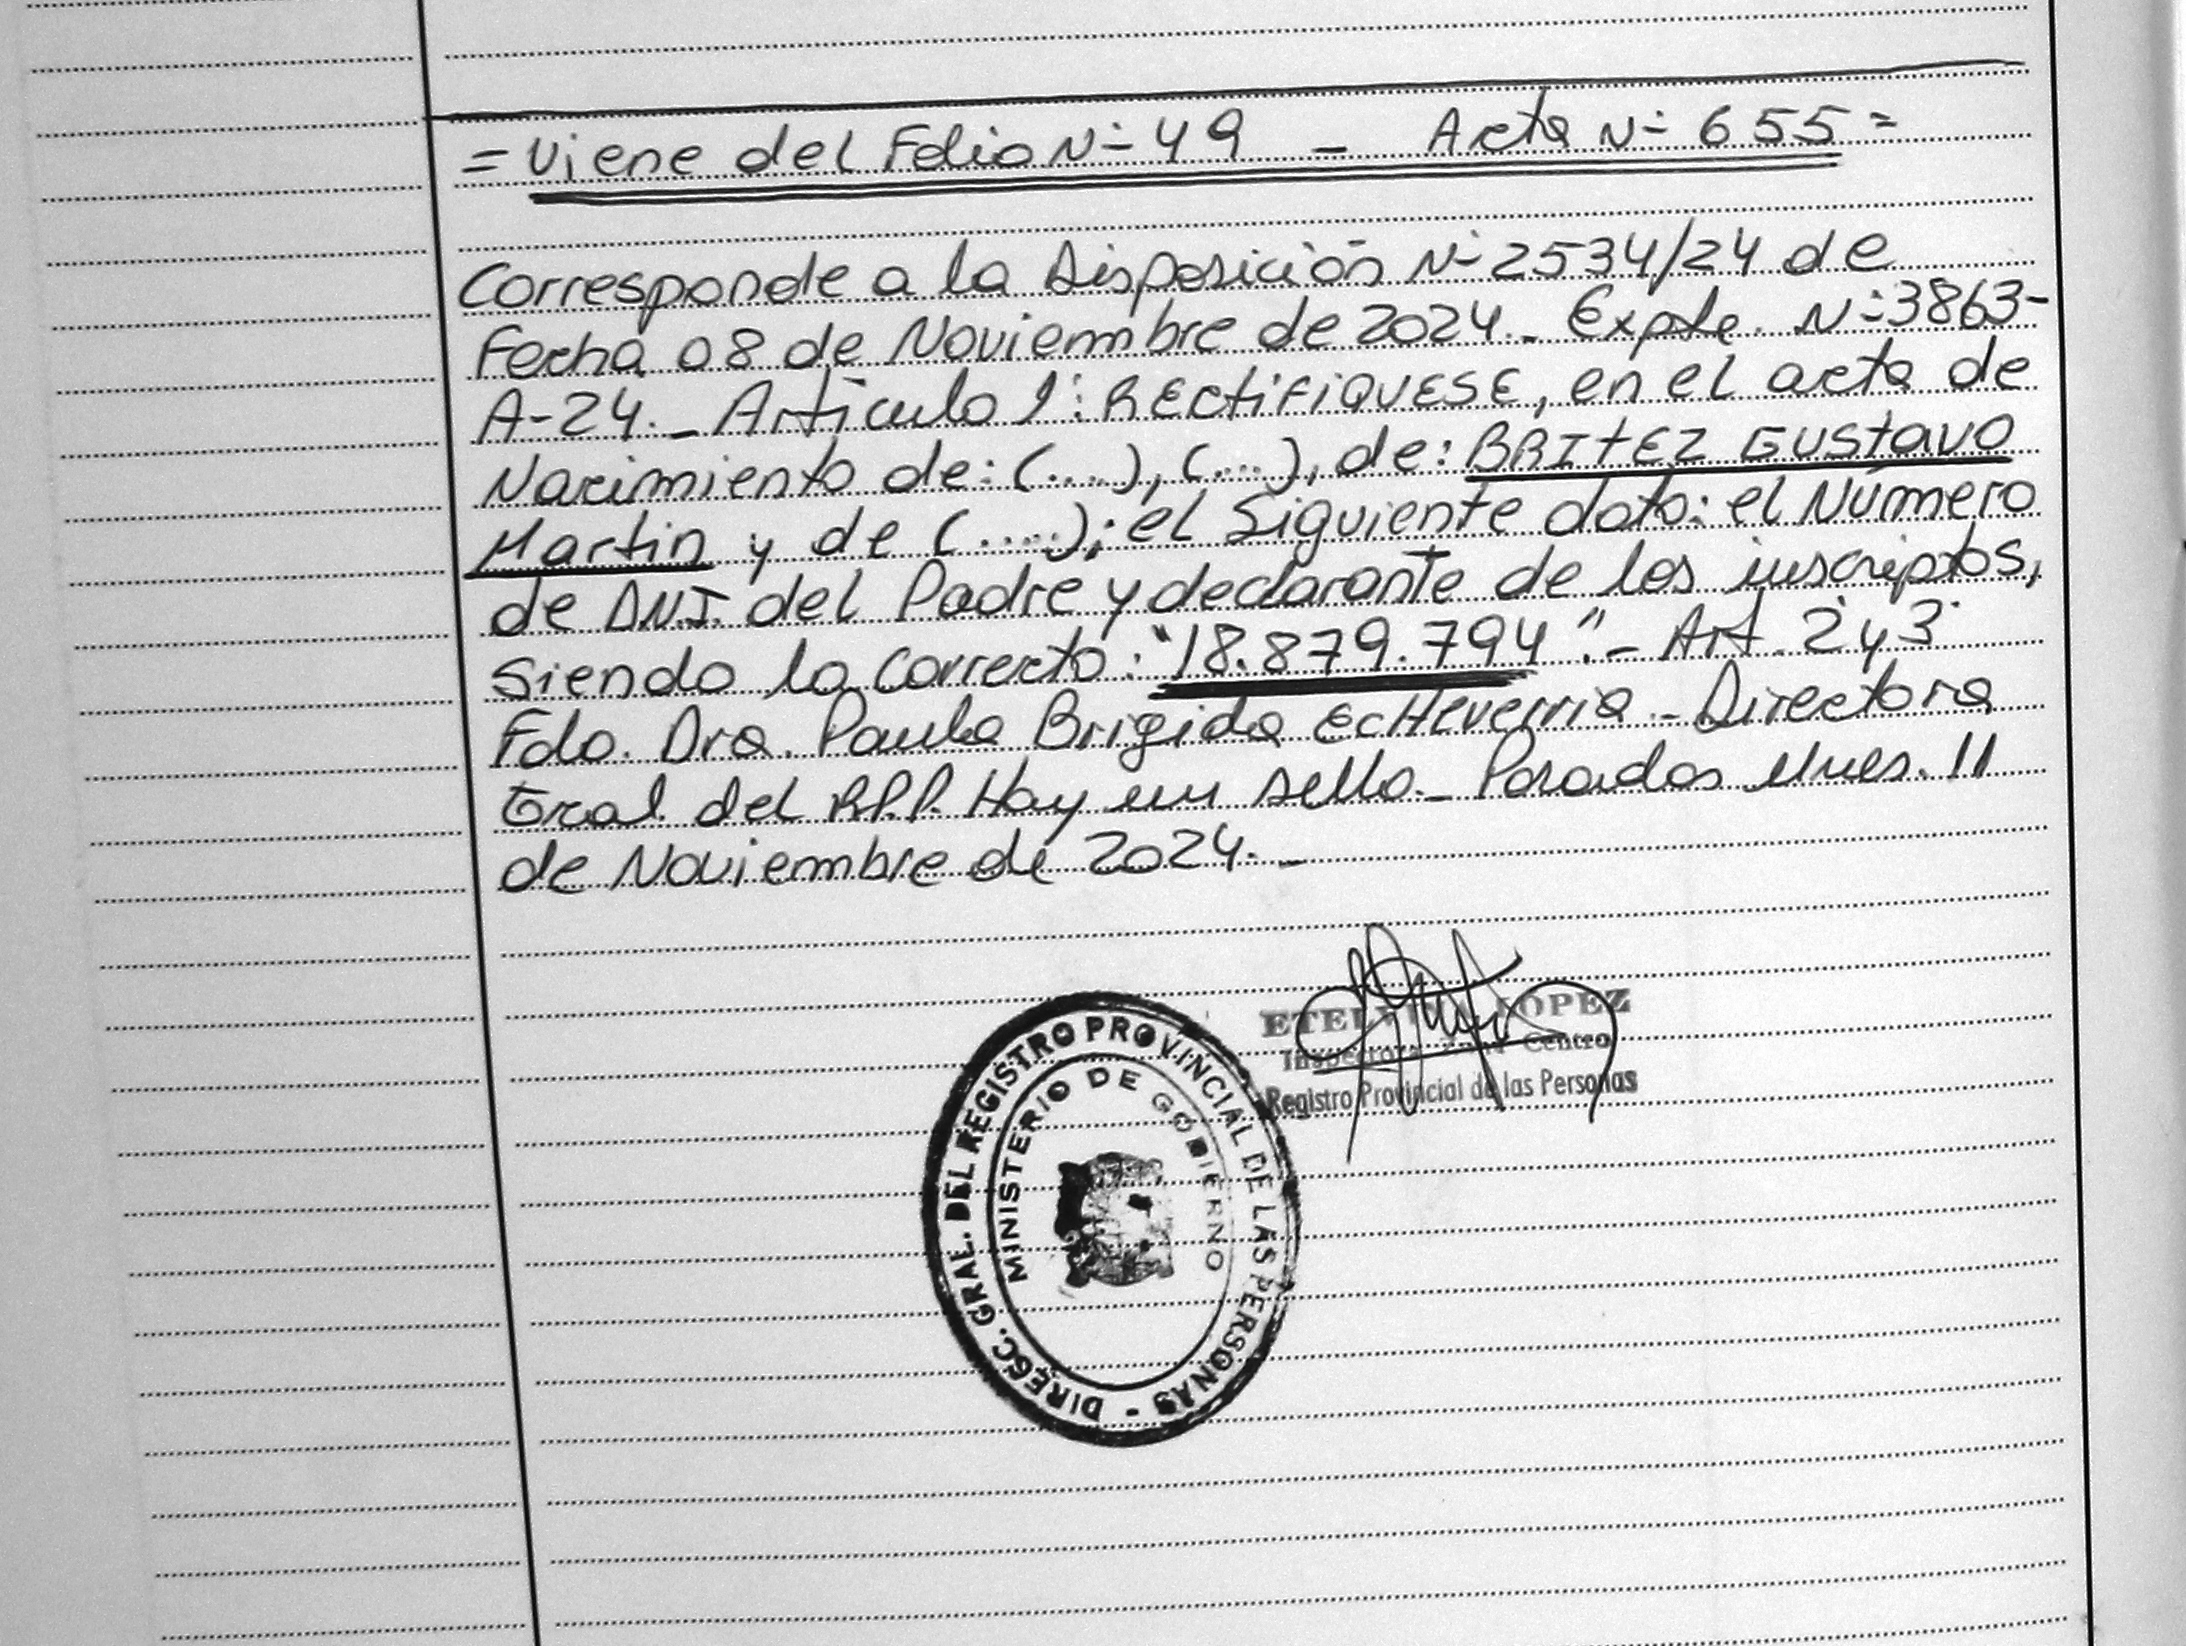 = Viene del Folio N- 49 - Acta N- 655 =
Corresponde a la Disposición N- 2534/24 de
Fecha 08 de Noviembre de 2024.- Expte. N-: 3863-
A-24.- Artículo 1: RECTIFIQUESE, en el acta de
Nacimiento de: (....), (....), de: BRITEZ GUSTAVO
Martin y de (.....); el Siguiente dato: el Número
de D.N.I. del Padre y declarante de los inscriptos,
Siendo lo Correcto: "18.879.794".- Art. 2 y 3
Fdo. Dra. Paula Brigida Echeverria - Directora
Gral. del R.P.P. Hay un sello.- Posadas Mnes. 11
de Noviembre de 2024.-
ETELVINA LOPEZ
Inspectora Zona Centro
Registro Provincial de las Personas
DIRECC. GRAL. DEL REGISTRO PROVINCIAL DE LAS PERSONAS -
MINISTERIO DE GOBIERNO